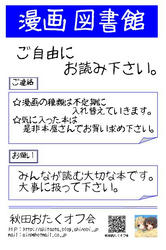 漫画図書館
ご自由に
お読み下さい。
ご連絡
☆漫画の種類は不定期に
入れ替えていきます。
☆気に入った本は
是非本屋さんでお買い求め下さい。
お願い
みんなが読む大切な本です。
大事に扱って下さい。
秋田おたくオフ会